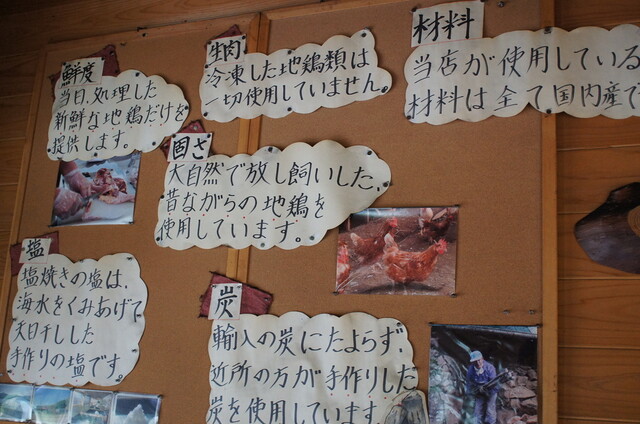 鮮度
当日処理した
新鮮な地鶏だけを
提供します。
生肉
冷凍した地鶏類は
一切使用していません。
材料
当店が使用している
材料は全て国内産で
固さ
大自然で放し飼いした、
昔ながらの地鶏を
使用しています。
塩
塩焼きの塩は、
海水をくみあげて
天日干しした
手作りの塩です。
炭
輸入の炭にたよらず、
近所の方が手作りした
炭を使用しています。